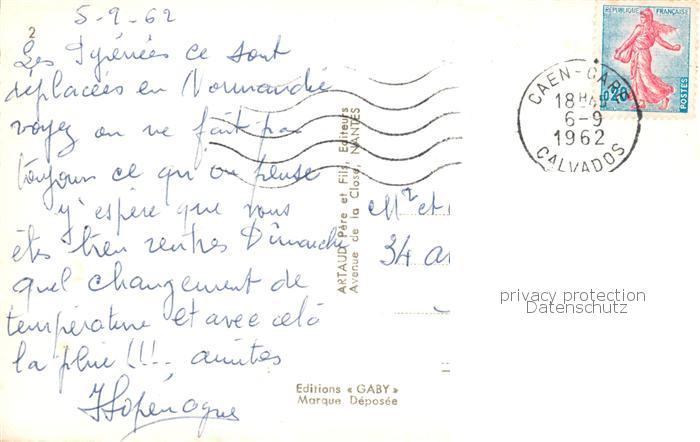 5-9-62
2
Les Pyrénées ce sont
déplacées en Normandie
voyez on ne fait pas
toujours ce qu'on pense
j'espère que vous
êtes bien rentrés Dimanche
quel changement de
température et avec cela
la pluie !!! amities
ARTAUD Père et Fils, Editeurs
Avenue de la Close, NANTES
Editions « GABY »
Marque Déposée
Mr et
34
REPUBLIQUE FRANÇAISE
0,20
POSTES
CAEN-GARE
18H
6-9
1962
CALVADOS
privacy protection
Datenschutz